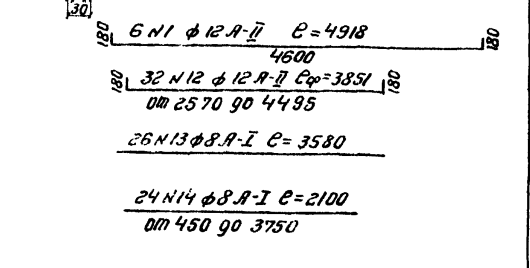 30
180 6 N1 ф 12 А-II ℓ=4918 180
4600
180 32 N12 ф 12 А-II ℓср=3851 180
от 2570 до 4495
26 N13 ф 8 А-I ℓ= 3580
24 N14 ф 8 А-I ℓ=2100
от 450 до 3750